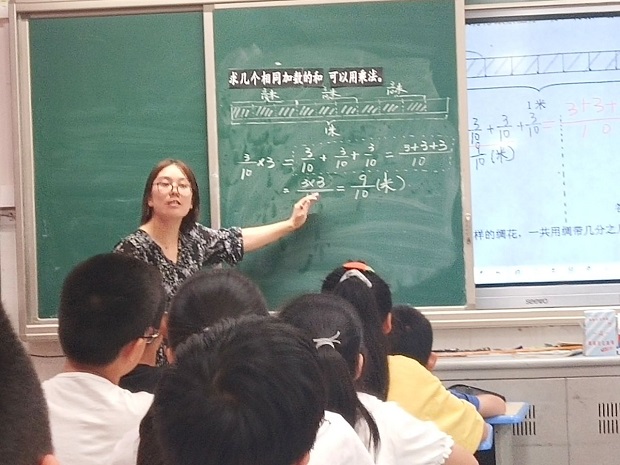 求几个相同加数的和 可以用乘法。
1米
3/10 × 3 = 3/10 + 3/10 + 3/10 = 3+3+3/10
= 3×3/ = 9/10 (米)
1米
3/10 + 3/10 + 3/10 = 3+3+
9/10 (米)
样的绸花，一共用绸带几分之
seewo